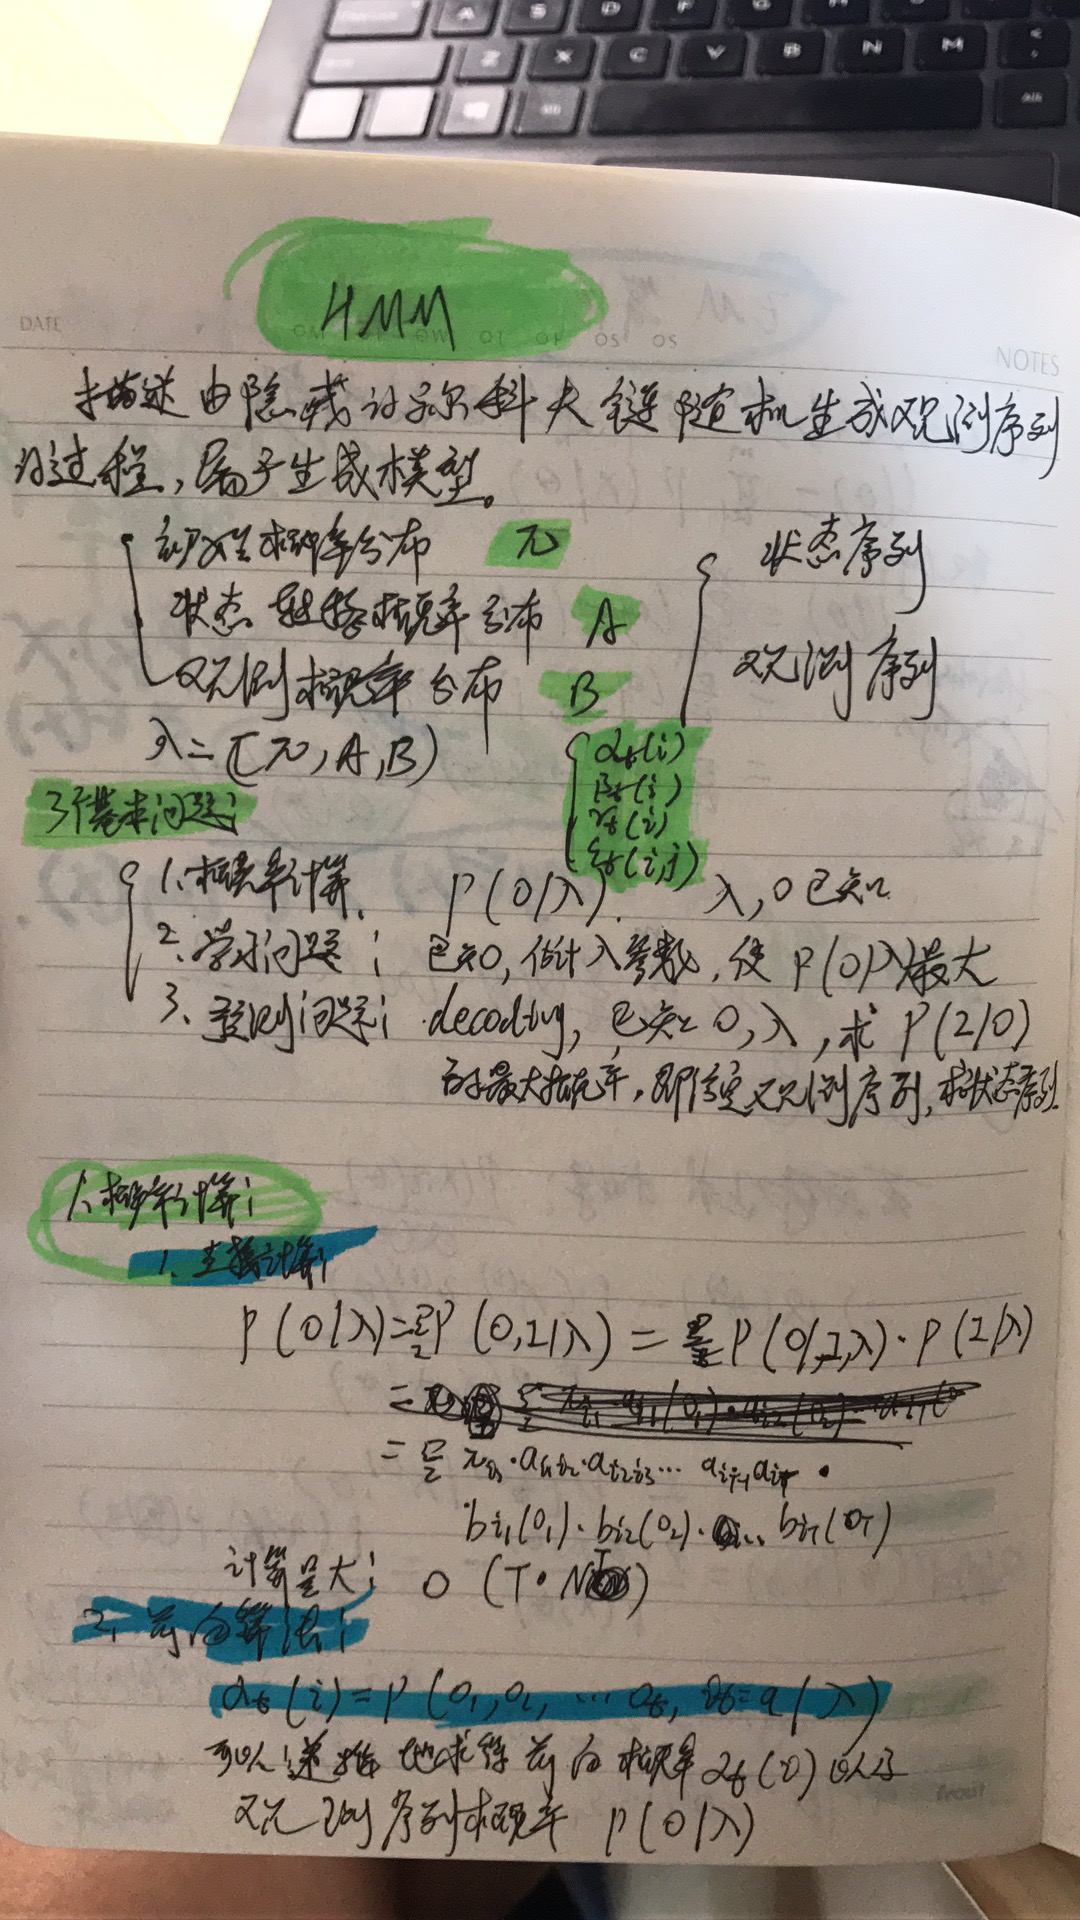 A S D F G H
Z X C V B N M
Alt
Alt
HMM
DATE
NOTES
描述由隐藏的马尔科夫链随机生成观测序列
的过程,属于生成模型。
初始概率分布 π
状态转移概率分布 A
观测概率分布 B
状态序列
观测序列
λ=(π,A,B)
αt(i)
βt(i)
γt(i)
ξt(i,j)
3个基本问题:
1、概率计算. P(O|λ). λ,O已知
2、学习问题: 已知O,估计λ参数,使P(O|λ)最大
3、预测问题: decoding,已知O,λ,求P(I|O)
的最大概率,即给定观测序列,求状态序列
1、概率计算:
1、直接计算:
P(O|λ)=ΣP(O,I|λ)=ΣP(O|I,λ)·P(I|λ)
=Σ πi1·ai1i2·ai2i3… aiT-1aiT ·
bi1(o1)·bi2(o2)·… biT(oT)
计算量大: O(T·N^T)
2、前向算法:
αt(i)=P(o1,o2,…ot,it=qi|λ)
可以递推地求得前向概率αt(i)以及
观测序列概率 P(O|λ)